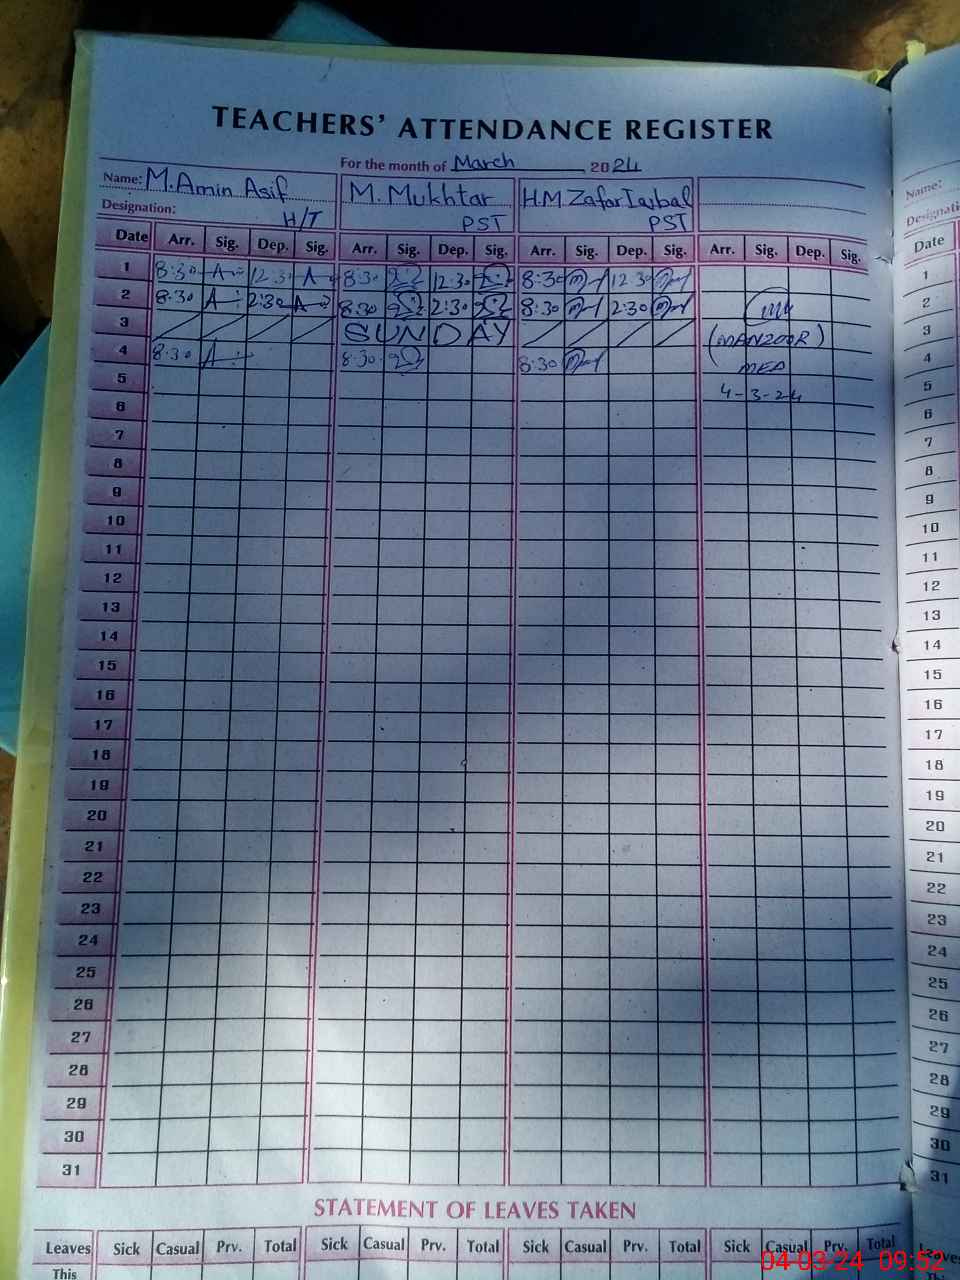 TEACHERS' ATTENDANCE REGISTER
For the month of March 2024
Name: M. Amin Asif M. Mukhtar H.M Zafar Iqbal
Designation: H/T PST PST
Date Arr. Sig. Dep. Sig. Arr. Sig. Dep. Sig. Arr. Sig. Dep. Sig. Arr. Sig. Dep. Sig.
1 8:30 12:30 8:30 12:30 8:30 12:30
2 8:30 2:30 8:30 2:30 8:30 2:30
3 SUNDAY (MANZOOR)
4 8:30 8:30 8:30 MEA
5 4-3-24
6
7
8
9
10
11
12
13
14
15
16
17
18
19
20
21
22
23
24
25
26
27
28
29
30
31
STATEMENT OF LEAVES TAKEN
Leaves Sick Casual Prv. Total Sick Casual Prv. Total Sick Casual Prv. Total Sick Casual Prv. Total
This
04-03-24 09:52
Name:
Designati
Date
1
2
3
4
5
6
7
8
9
10
11
12
13
14
15
16
17
18
19
20
21
22
23
24
25
26
27
28
29
30
31
Leaves